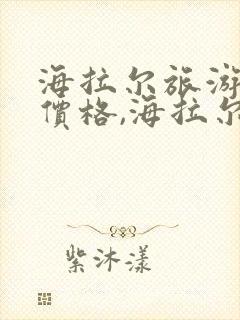 海拉尔旅游
價格,海拉尔
紫沐漾